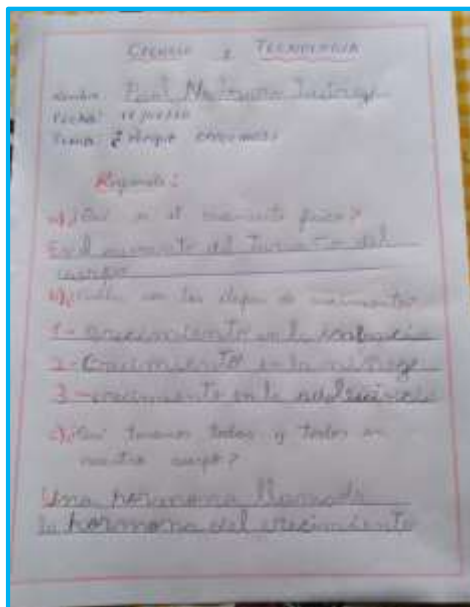 CIENCIA Y TECNOLOGIA
Nombre: Paol
Fecha:
Tema: ¿Porque crecemos?
Responde:
a) ¿Qué es el crecimiento físico?
Es el aumento del tamaño del
cuerpo
b) ¿Cuáles son las etapas de crecimiento?
1- crecimiento en la infancia
2- Crecimiento en la niñez
3- crecimiento en la adolescencia
c) ¿Qué tenemos todas y todos en
nuestro cuerpo?
Una hormona llamada
la hormona del crecimiento